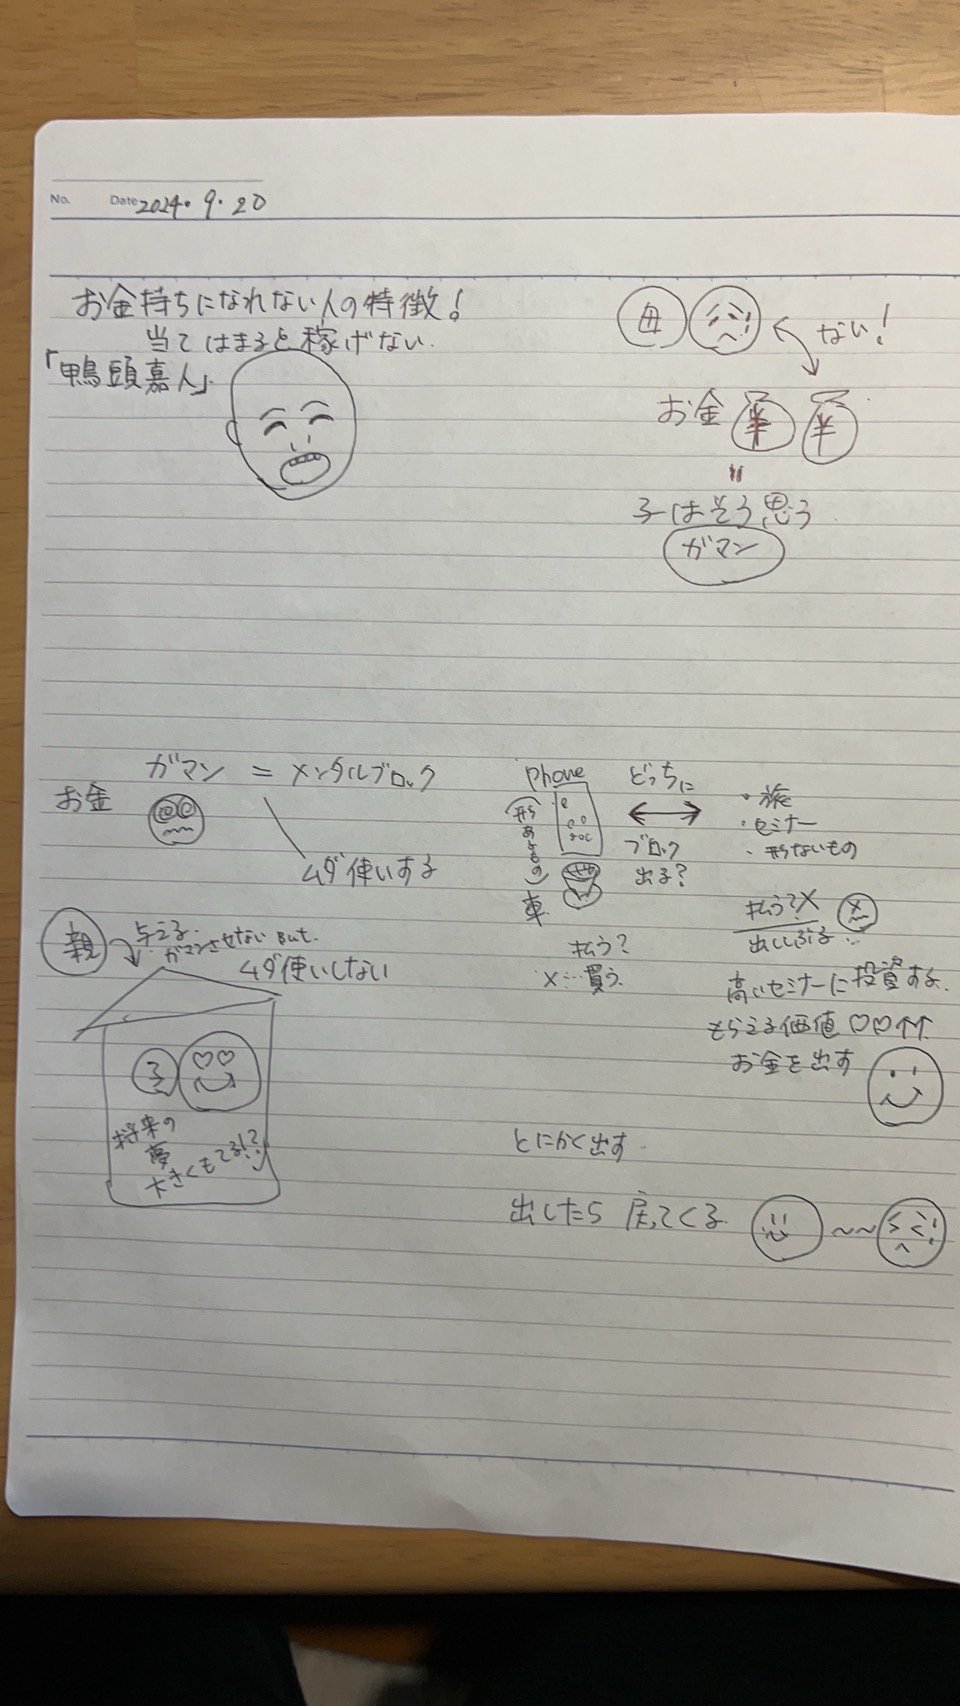 No.
Date 2024. 9. 20
お金持ちになれない人の特徴!
当てはまると稼げない.
「鴨頭嘉人」
母
ない!
お金 ¥ ¥
=
子はそう思う
ガマン
ガマン = メンタルブロック
お金
ムダ使いする
親
与える.
ガマンさせない But.
ムダ使いしない
子
将来の
夢
大きくもてる!?
phone
形あるもの
車
どっちに
ブロック
出る?
・旅
・セミナー
・形ないもの
払う?
×…買う.
払う?×
出ししぶる…
高いセミナーに投資する.
もらえる価値 ♡♡↑↑
お金を出す
とにかく出す.
出したら戻ってくる